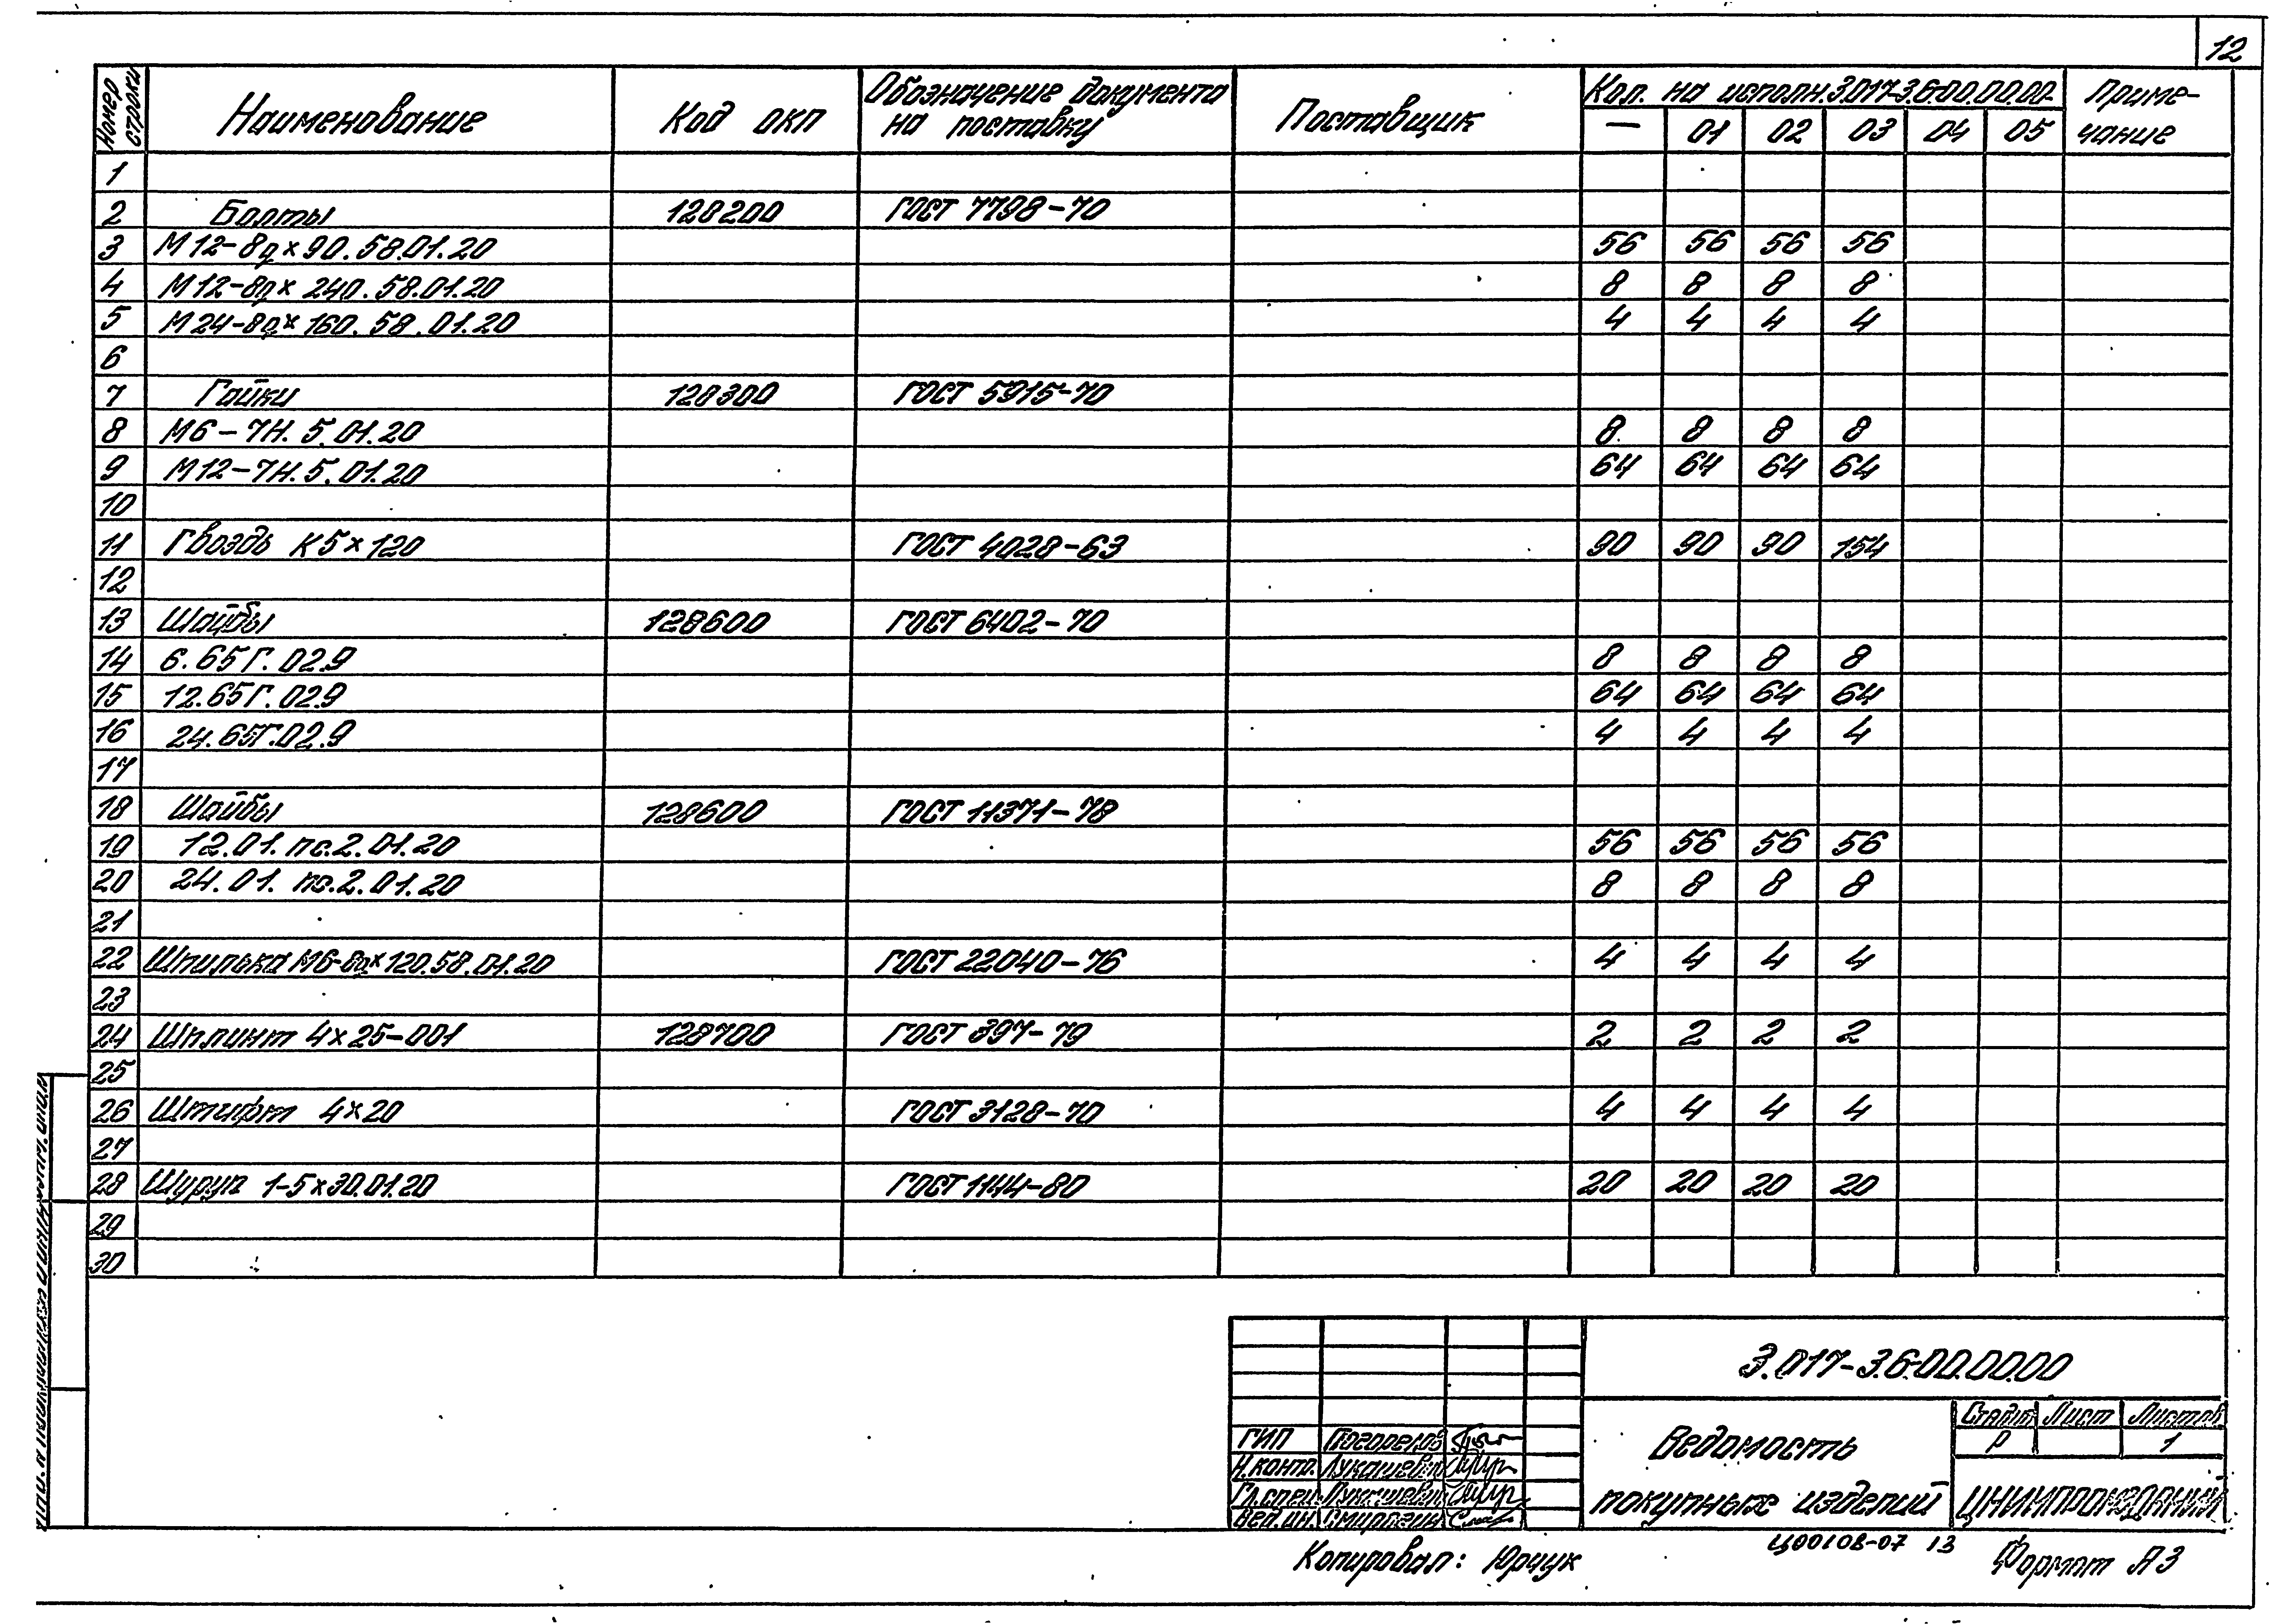 12
Номер строки Наименование Код ОКП Обозначение документа на поставку Поставщик Кол. на исполн. 3.017-3.6-00.00.00- Примечание
— 01 02 03 04 05
1
2 Болты 128200 ГОСТ 7798-70
3 М12-8g×90.58.01.20 56 56 56 56
4 М12-8g×240.58.01.20 8 8 8 8
5 М24-8g×160.58.01.20 4 4 4 4
6
7 Гайки 128300 ГОСТ 5915-70
8 М6-7Н.5.01.20 8 8 8 8
9 М12-7Н.5.01.20 64 64 64 64
10
11 Гвоздь К5×120 ГОСТ 4028-63 90 90 90 154
12
13 Шайбы 128600 ГОСТ 6402-70
14 6.65Г.02.9 8 8 8 8
15 12.65Г.02.9 64 64 64 64
16 24.65Г.02.9 4 4 4 4
17
18 Шайбы 128600 ГОСТ 11371-78
19 12.01.пс.2.01.20 56 56 56 56
20 24.01.пс.2.01.20 8 8 8 8
21
22 Шпилька М6-8g×120.58.01.20 ГОСТ 22040-76 4 4 4 4
23
24 Шплинт 4×25-001 128700 ГОСТ 397-79 2 2 2 2
25
26 Штифт 4×20 ГОСТ 3128-70 4 4 4 4
27
28 Шуруп 1-5×30.01.20 ГОСТ 1144-80 20 20 20 20
29
30
3.017-3.6-00.00.00
Ведомость покупных изделий
Стадия Лист Листов
Р 1
ГИП Погорелов
Н.контр. Лукашевич
Гл.спец. Лукашевич
Вед.ин.
Копировал: Юрчук
Ц00108-07 13
Формат А3